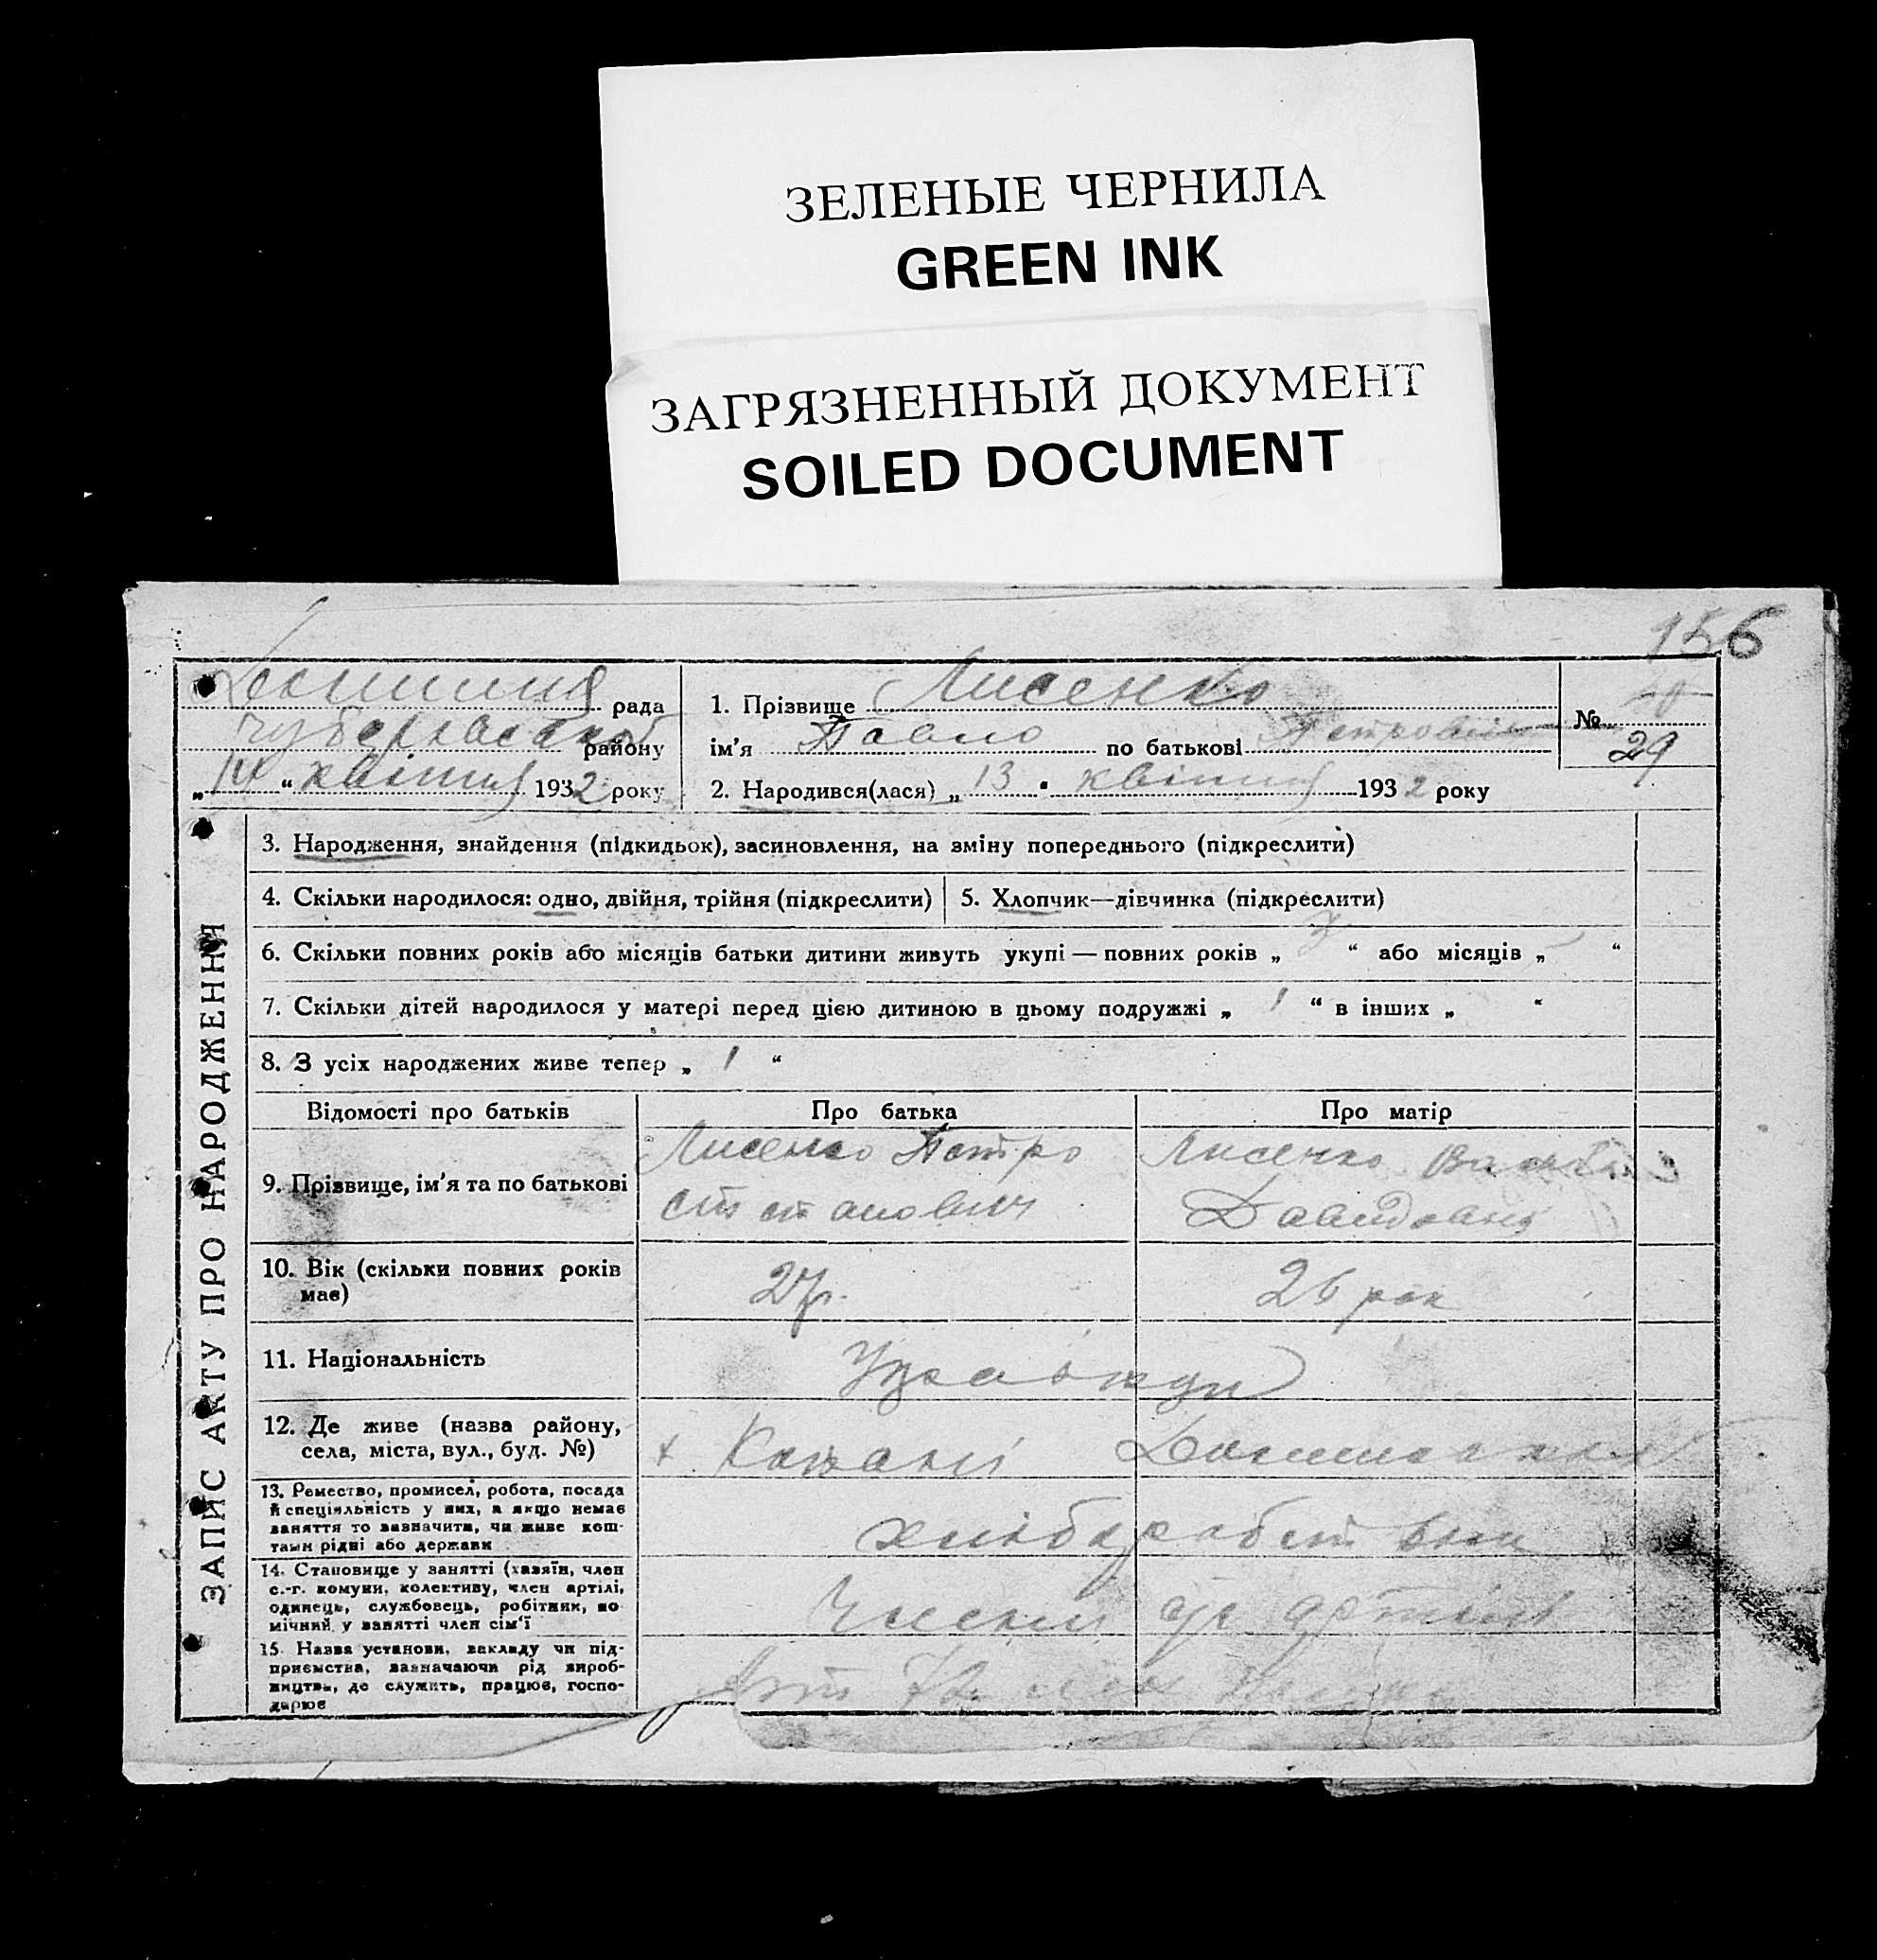 ЗЕЛЕНЫЕ ЧЕРНИЛА
GREEN INK
ЗАГРЯЗНЕННЫЙ ДОКУМЕНТ
SOILED DOCUMENT
156
рада
району
„14“ квітня 1932 року
1. Прізвище Лисенко
ім'я Павло по батькові Петрович
2. Народився(лася) „13" квітня 1932 року
№ 29
ЗАПИС АКТУ ПРО НАРОДЖЕННЯ
3. Народження, знайдення (підкидьок), засиновлення, на зміну попереднього (підкреслити)
4. Скільки народилося: одно, двійня, трійня (підкреслити)
5. Хлопчик—дівчинка (підкреслити)
6. Скільки повних років або місяців батьки дитини живуть укупі — повних років „ 3 “ або місяців „ – “
7. Скільки дітей народилося у матері перед цією дитиною в цьому подружжі „ 1 “ в інших „ “
8. З усіх народжених живе тепер „ 1 “
Відомості про батьків
Про батька
Про матір
9. Прізвище, ім'я та по батькові
Лисенко Петро
Степанович
Лисенко
Давидовна
10. Вік (скільки повних років
має)
27 р.
26 рок
11. Національність
Українці
12. Де живе (назва району,
села, міста, вул., буд. №)
13. Ремество, промисел, робота, посада
й спеціяльність у них, а якщо немає
заняття то зазначити, чи живе кош-
тами рідні або держави
хліборобство
14. Становище у занятті (хазяїн, член
с.-г. комуни, колективу, член артілі,
одинець, службовець, робітник, по
мічний у занятті член сім'ї
Члени с/г артілі
15. Назва установи, закладу чи під-
приємства, зазначаючи рід вироб-
ництва, де служить, працює, госпо-
дарює